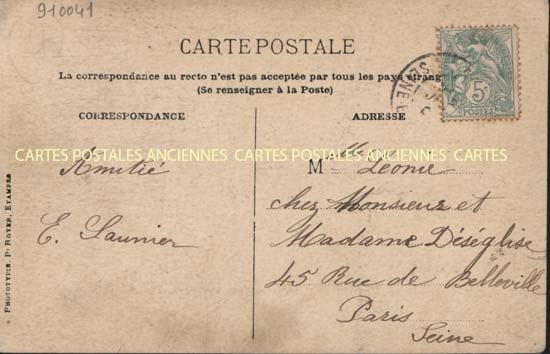 910041
CARTE POSTALE
La correspondance au recto n'est pas acceptée par tous les pays étrang
(Se renseigner à la Poste)
CORRESPONDANCE
ADRESSE
5c
POSTES
SEINE
CARTES POSTALES ANCIENNES CARTES POSTALES ANCIENNES CARTES
Amitié
E. Saunier
Mlle Léonie
chez Monsieur et
Madame Déséglise
45 Rue de Belleville
Paris
Seine
PHOTOTYPIE P. ROYER, ETAMPES